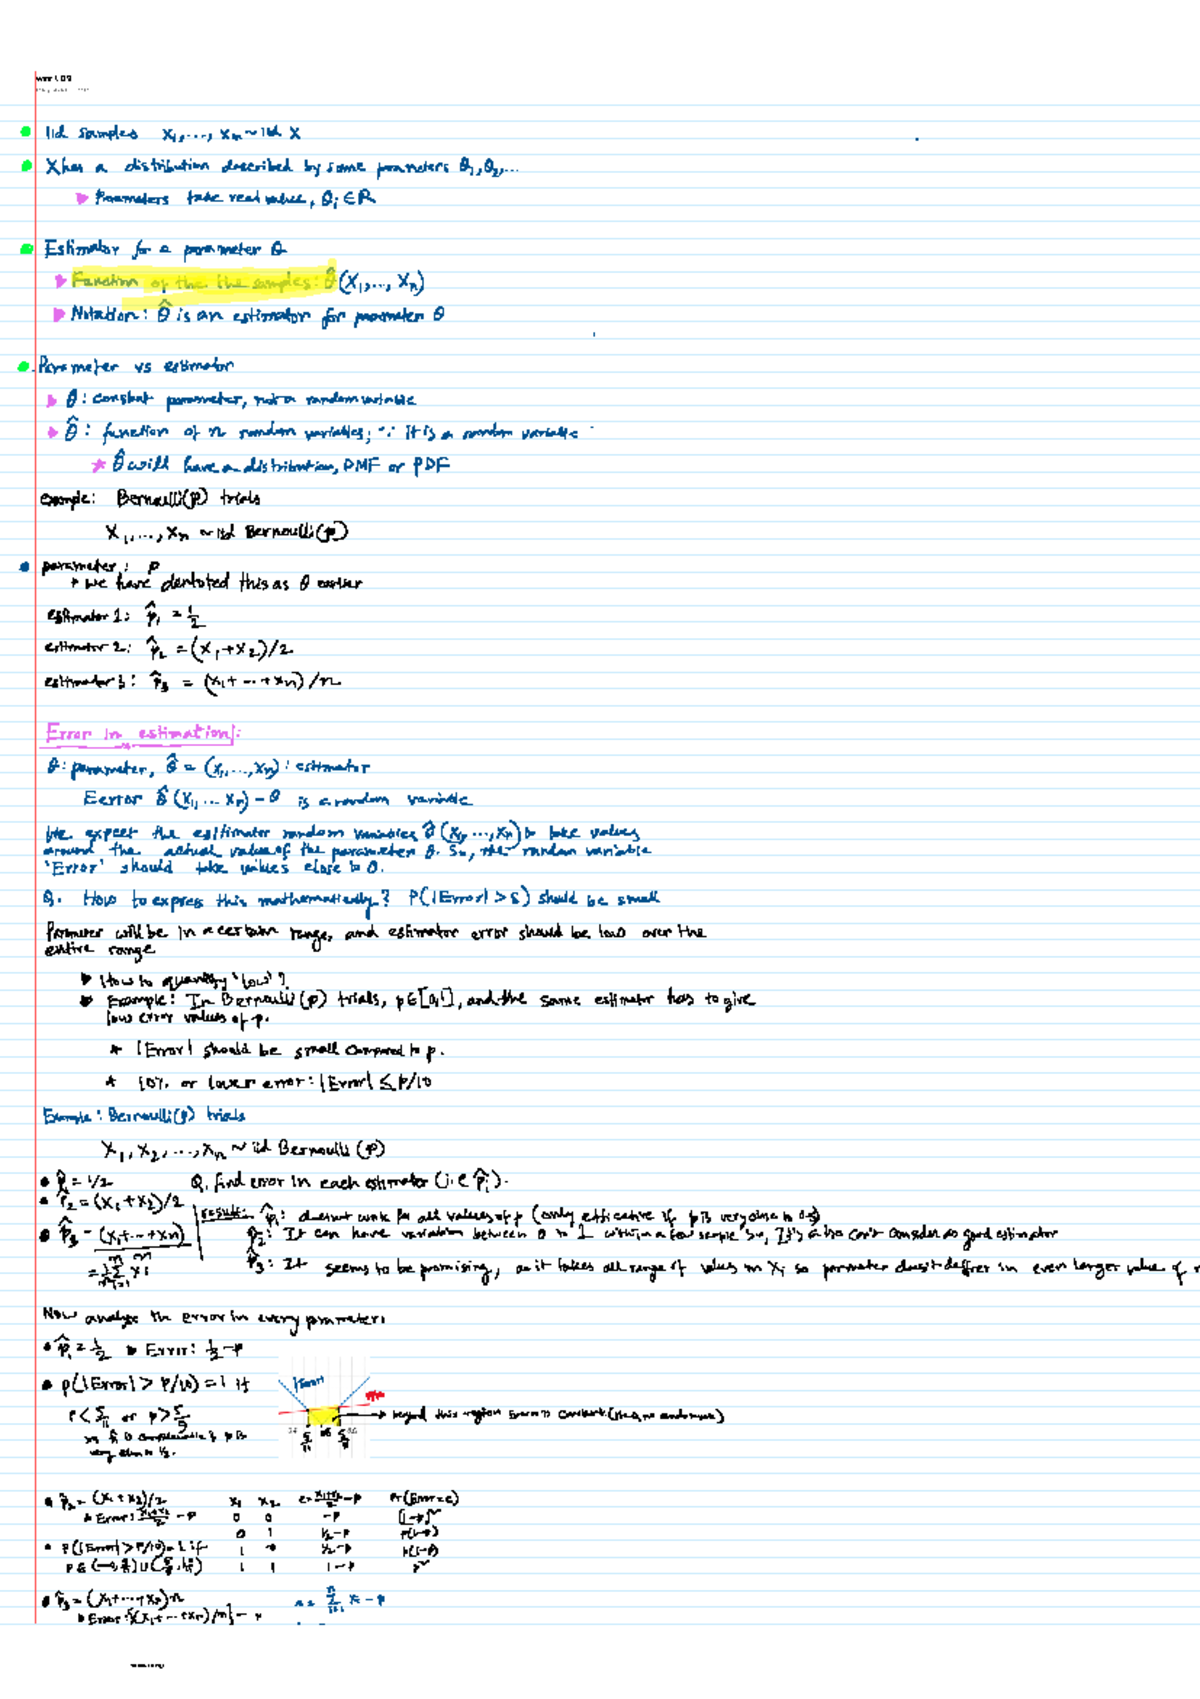 iid samples X₁,..., Xₙ ~ iid X
X has a distribution described by some parameters θ₁, θ₂,...
Parameters take real value, θᵢ ∈ R
Estimator for a parameter θ
Function of the the samples: θ̂(X₁,..., Xₙ)
Notation: θ̂ is an estimator for parameter θ
Parameter vs estimator
θ: constant parameter, not a random variable
θ̂: function of n random variables, ∵ it is a random variable
θ̂ will have a distribution, PMF or PDF
example: Bernoulli(p) trials
X₁,..., Xₙ ~ iid Bernoulli(p)
parameter: p
we have dentoted this as θ earlier
estimator 1: p̂₁ = 1/2
estimator 2: p̂₂ = (X₁+X₂)/2
estimator 3: p̂₃ = (X₁+...+Xₙ)/n
Error in estimation:
θ: parameter, θ̂ = (X₁,...,Xₙ): estimator
Eerror θ̂(X₁,...Xₙ) - θ is a random variable
We expect the esltimater random variables θ̂(X₁,...,Xₙ) to take values
around the actual value of the parameter θ. So, the random variable
'Error' should take values close to 0.
Q. How to express this mathematically? P(|Error| > δ) should be small
Parameter will be in a certain range, and estimator error should be low over the
entire range
How to quantify 'low'?
Example: In Bernoulli(p) trials, p∈[0,1], and the same estimator has to give
low error values of p.
* |Error| should be small compared to p.
* 10% or lower error: |Error| ≤ p/10
Example: Bernoulli(p) trials
X₁, X₂, ..., Xₙ ~ iid Bernoulli(p)
p̂₁ = 1/2 Q. find error in each estimator (i.e p̂ᵢ).
p̂₂ = (X₁+X₂)/2 result: p̂₁: doesnt work for all values of p (only effective if p is very close to 0.5)
p̂₃ = (X₁+...+Xₙ)/n p̂₂: It can have variation between 0 to 1 within a few sample so, It's also can't consider as good estimator
p̂₃: It seems to be promising, as it takes all range of values in Xᵢ so parameter doesn't differ in even larger value of n
Now analyse the error in every parameter:
p̂₁ = 1/2 Error: 1/2 - p
P(|Error| > p/10) = 1 if
p < 5/11 or p > 5/9
|Error|
very close to 1/2.
p̂₂ = (X₁+X₂)/2 X₁ X₂ e = (X₁+X₂)/2 - p Pr(Error=e)
Error: (X₁+X₂)/2 - p 0 0 -p (1-p)²
0 1 1/2-p p(1-p)
P(|Error| > p/10) = 1 if 1 0 1/2-p p(1-p)
1 1 1-p p²
p̂₃ = (X₁+...+Xₙ)/n
Error: {(X₁+...+Xₙ)/n} - p